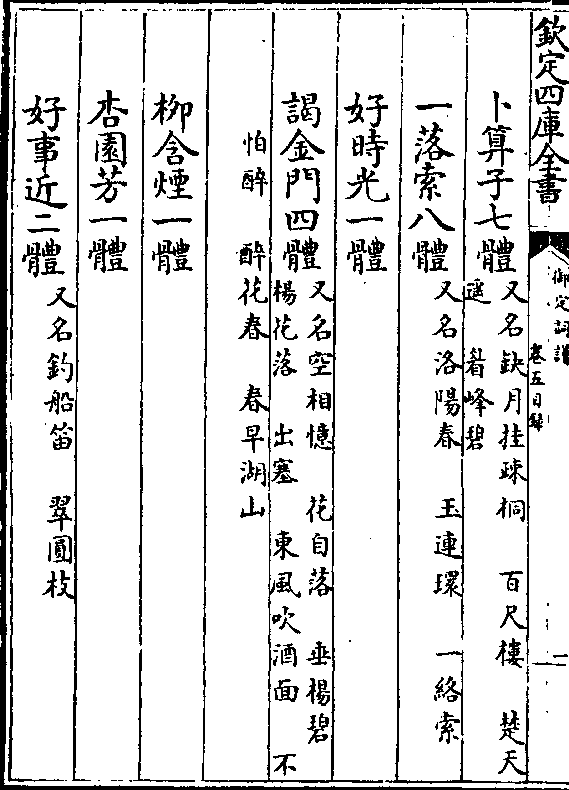 欽定四庫全書
御定詞譜
卷五目錄
一
卜算子七體 又名缺月挂疎桐 百尺樓 楚天
遥 眉峰碧
一落索八體 又名洛陽春 玉連環 一絡索
好時光一體
謁金門四體 又名空相憶 花自落 垂楊碧
楊花落 出塞 東風吹酒面 不
怕醉 醉花春 春早湖山
柳含煙一體
杏園芳一體
好事近二體 又名釣船笛 翠圓枝